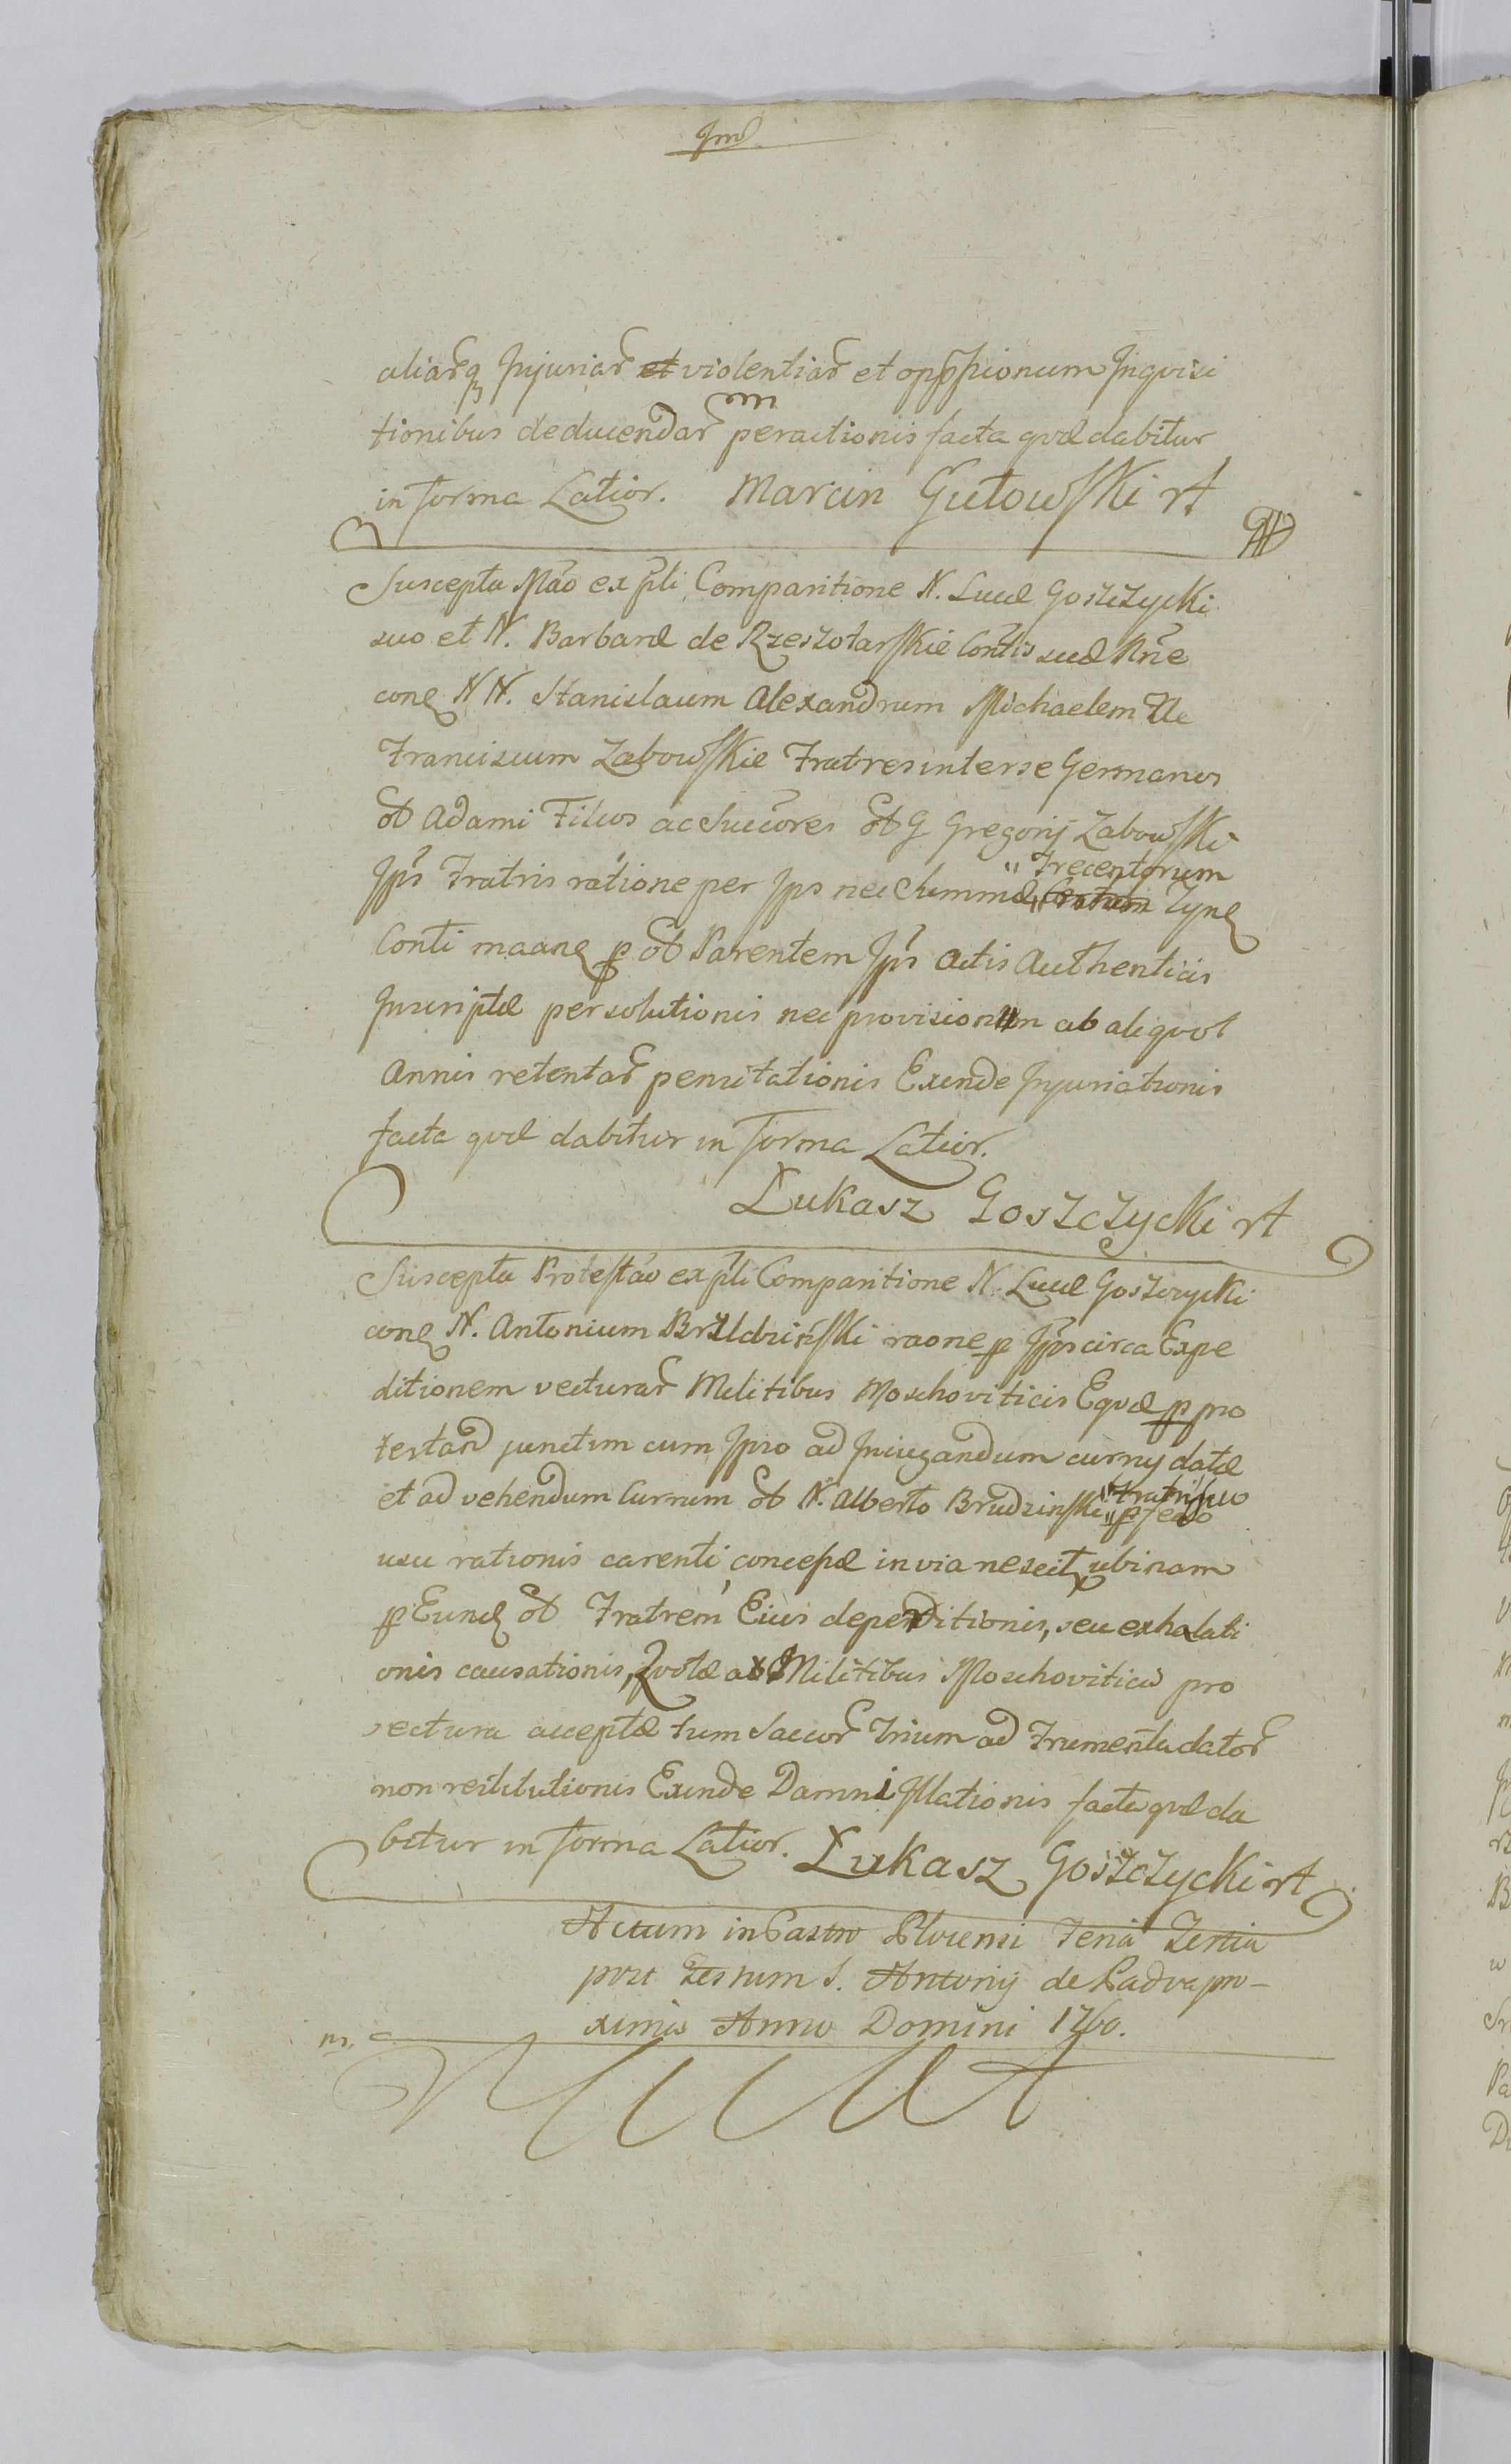 aliarq Injuriar et violentiar et oppssionum Inquisi
tionibus deducendar peractionis facta qvæ dabitur
in Forma Latior. Marcin Gutowski
Suscepta Mão ex pli Comparitione N. Lucæ Goszczycki
suo et N. Barbaræ de Rzeszotarskie Contis suæ Nne
conq NN. Stanislaum Alexandrum Michaelem
Franciscum Zabowskie Fratres inter se Germanos
Adami Filios ac Succores Gregorij Zabowski
Jps Fratris ratione per Jps nec Summæ "Trecentorum
Centum Zynq
Conti maanq p Parentem Jps Actis Authenticis
Inscriptæ persolutionis nec provisionum ab aliqvot
Annis retentar pensitationis Exinde Injuriationis
facta qvæ dabitur in Forma Latior.
Łukasz Goszczycki
Suscepta Protestão ex pli Comparitione N. Lucæ Goszczycki
conq N. Antonium Brudzinski raone p Jps circa Expe
ditionem vecturar Militibus Moschoviticis Eqvæ p pro
testand junctim cum Jpso ad Injugandum curruj datæ
et ad vehendum Currum N. Alberto Brudzinski "Fratri suo
usu rationis carenti conceptæ in via nescit ubinam
p Eunq Fratrem Eius deperditionis, seu exhalati
onis causationis, Qvotæ a Militibus Moschoviticis pro
vectura acceptæ tum Saccor Trium ad Frumenta dator
non restitutionis Exinde Damni Illationis facta qvæ da
bitur in Forma Latior. Łukasz Goszczycki
Actum in Castro Plocensi Feria Tertia
post Festum S. Antonij de Padva pro-
ximis Anno Domini 1760.